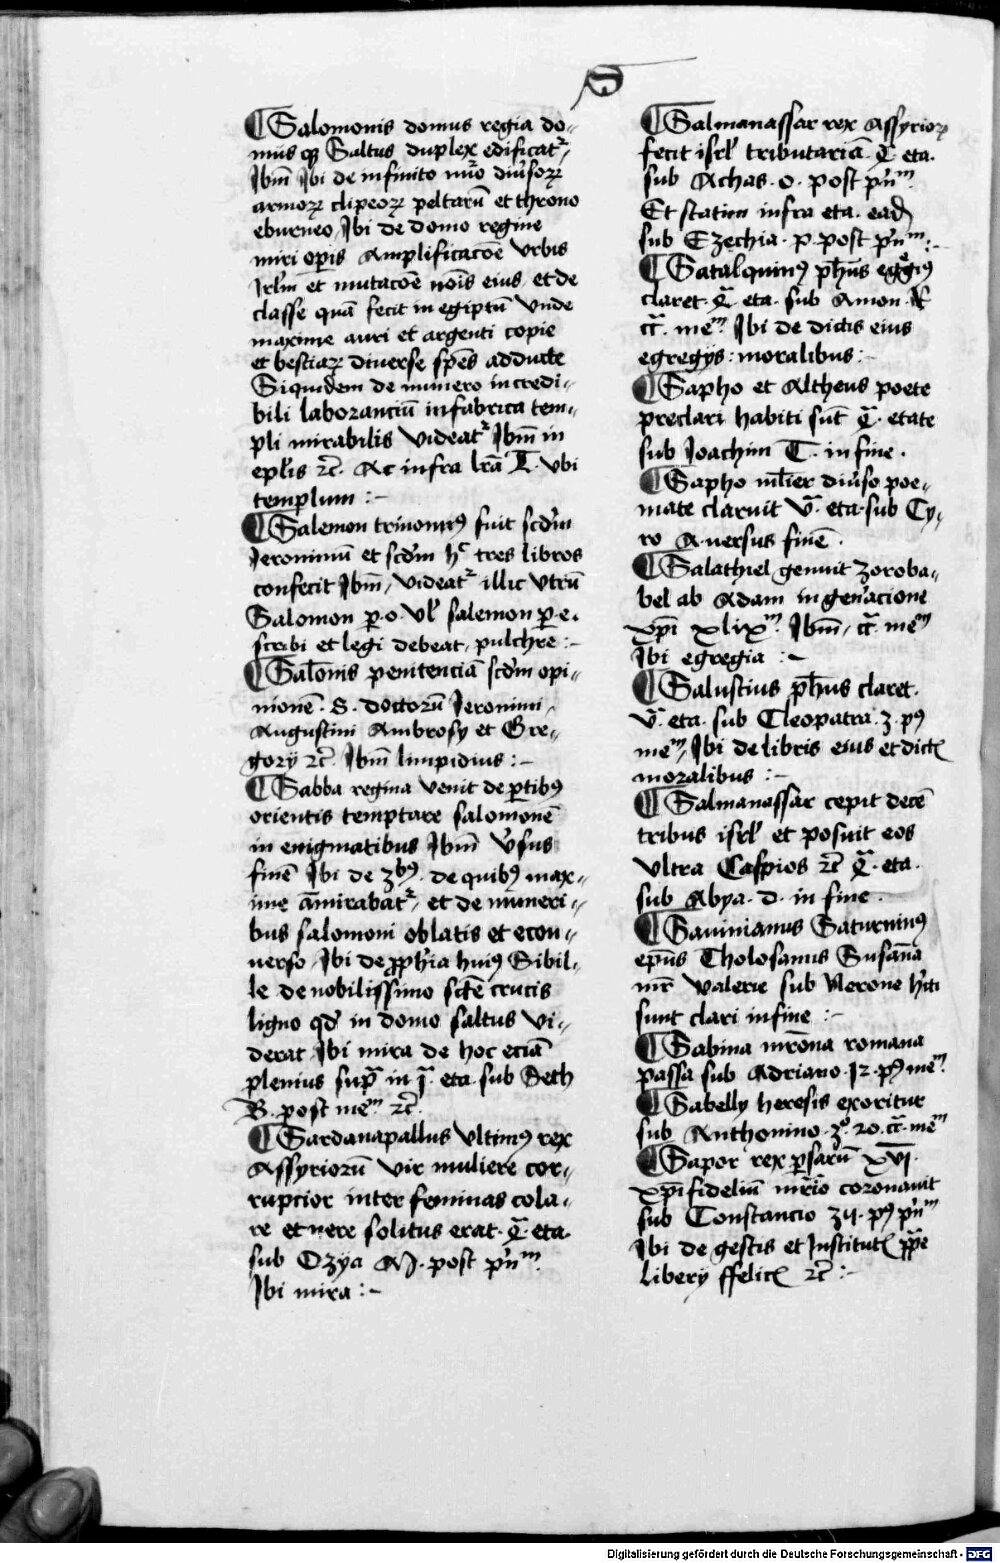 S
Salomonis domus regia do-
mus qȝ Saltus duplex edificatr,
Ibm̄ Ibi de infinito nūo diūsorꝝ
armorꝝ clipeorꝝ peltarū et throno
eburneo, Ibi de domo regine
miri operis Amplificacōē urbis
Irlm̄ et mutacōē nōis eius, et de
classe quā fecit in egiptū unde
maxime auri et argenti copie
et bestiarꝝ diuerse spēs adducte
Siquidem de numero incredi-
bili laboranciū infabrica tem-
pli mirabilis videatr Ibm̄ in
eplis ⁊c̄. Ac infra lrā T. ubi
templum :-
Salemon trinomius fuit scdm
Jeronimū et scdm hc tres libros
confecit Ibm̄, videatr illic utrū
Salomon ꝑ.o. ul salemon ꝑ.e.
scribi et legi debeat, pulchre :-
Salōnis penitenciā scdm opi-
nionē .S. doctorū Jeronimi,
Augustini Ambrosy et Gre-
gorij ⁊c̄. Ibm̄ limpidius :-
Sabba regina venit de ꝑtibꝰ
orientis temptare salomonē
in enigmatibus Ibm̄ vsus
finē Ibi de 3bꝰ. de quibꝰ max-
ime ām̄irabatr, et de muneri-
bus salomoni oblatis et econ-
uerso, Ibi de ꝓphia huiꝰ Sibil-
le de nobilissimo sctē crucis
ligno qd in domo saltus vi-
derat Ibi mira de hoc eciā
plenius supᵃ in ja. eta. sub Seth
B. post mem ⁊c̄.
Sardanapallus ultimꝰ rex
Assyriorū vir muliere cor-
rupcior inter feminas cola-
re et nere solitus erat. qa. eta.
sub Ozya AJ. post pn̄m.
Ibi mira :-
Salmanassar rex Assyriorꝝ
fecit isrl tributariā. qa. eta.
sub Achas. o. post pn̄m.
Et statim infra eta. eadꝫ
sub Ezechia. p. post pn̄m :-
Satalquinꝰ phūs egregiꝰ
claret. qa. eta. sub Amon. R
cᵃ. mem Ibi de dictis eius
egregijs : moralibus :-
Sapho et Altheus poete
preclari habiti sūt qa. etate
sub Joachim T. in fine.
Sapho mlier diūso poe-
mate claruit va. eta. sub Cy-
ro A. uersus finē.
Salathiel genuit zoroba-
bel ab Adam in genacione
xpi xlixm. Ibm̄, cᵃ. mem
Ibi egregia :-
Salustius phūs claret.
va. eta. sub Cleopatra. 3. pꝰ
mem, Ibi de libris eius et dictꝭ
moralibus :-
Salmanassar cepit decē
tribus isrl et posuit eos
ultra Caspios ⁊c̄ qa. eta.
sub Abya. d. in fine.
Sauinianus Saturninꝰ
epūs Tholosanus Susāna
mr̄ valerie sub Nerone hiti
sunt clari infine :-
Sabina mrōna romana
passa sub Adriano. 12. pꝰ mem.
Sabelly heresis exoritur
sub Anthonino. 3º. 20. cᵃ. mem
Sapor rex ꝑsarū xvj.
xpifideliū mrio coronauit
sub Constancio 3ij. pꝰ pn̄m
Ibi de gestis et Institutꝭ ppē
liberij ffelicꝭ ⁊c̄ :-
Digitalisierung gefördert durch die Deutsche Forschungsgemeinschaft - DFG